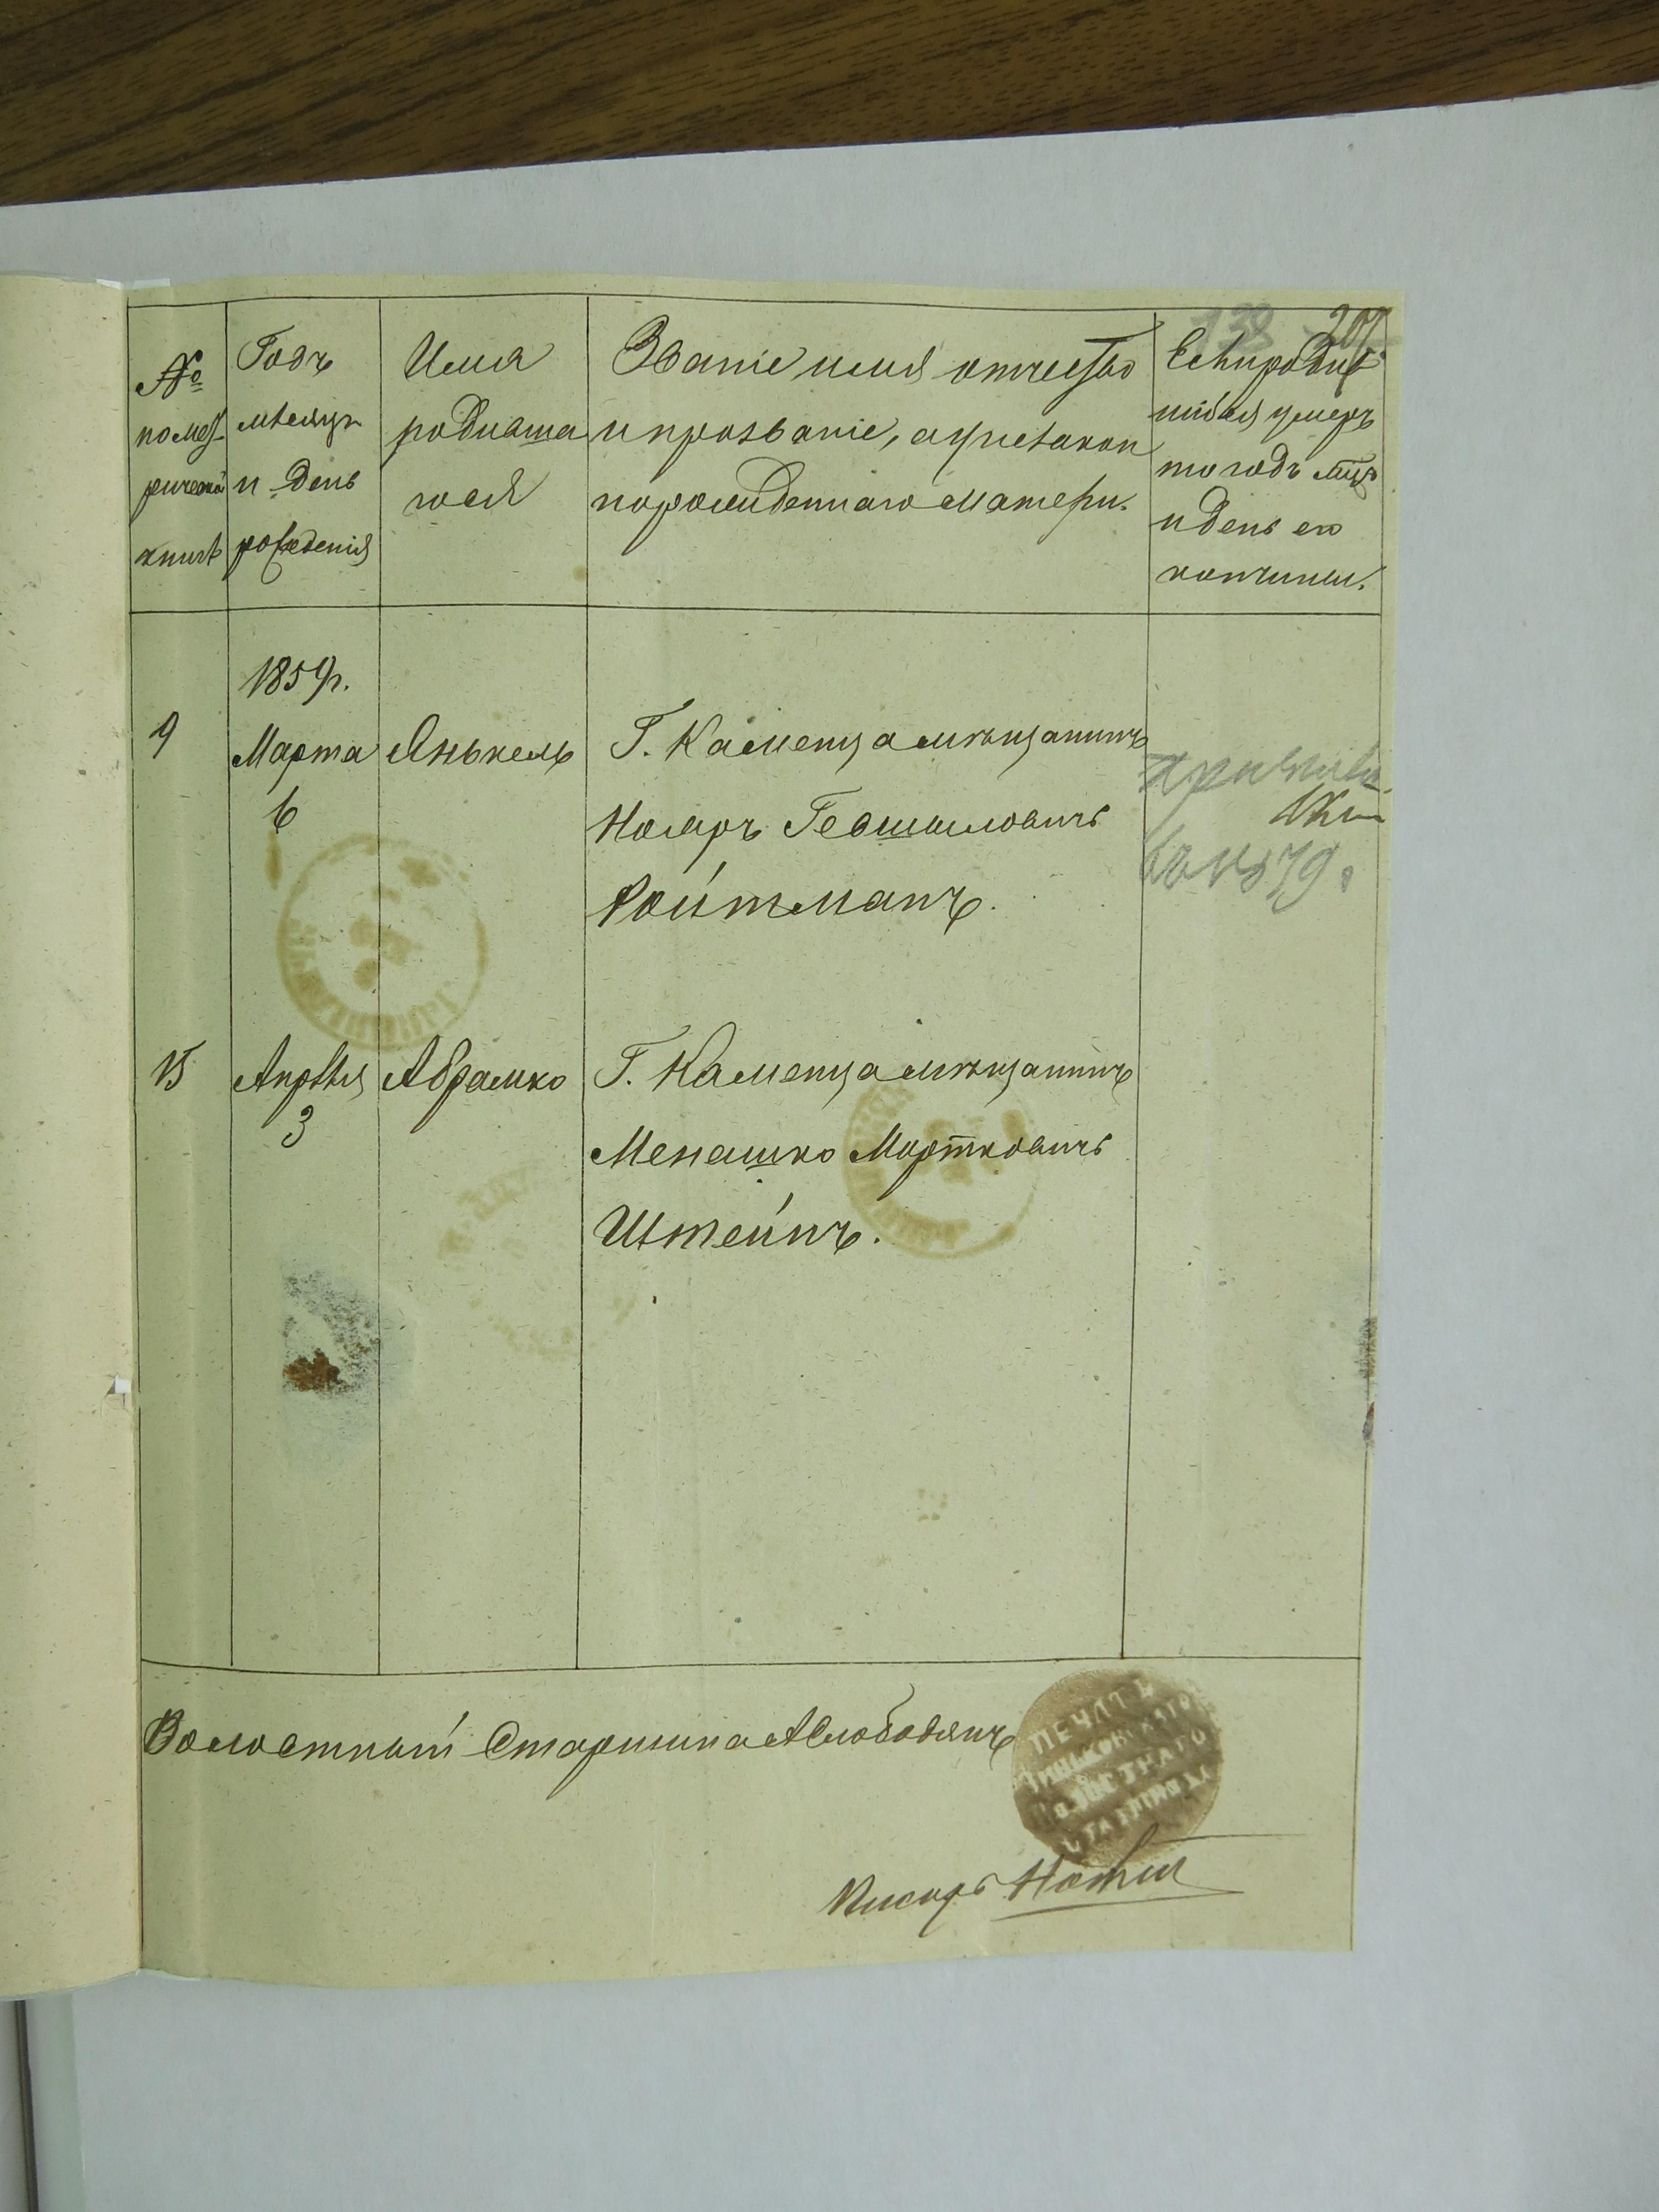 207
№ по метрической книгѣ
Годъ мѣсяцъ и день рожденія
Имя родившагося
Званіе имя отчество и прозваніе, а у незаконнорожденнаго матери.
Если родившійся умеръ то годъ мѣц. и день его кончины.
1859г.
9 Марта 6 Янькель
Г. Каменца мѣщанинъ
Гершковичъ
Ройтманъ.
въ № 79.
15 Апрѣля 3 Абрамко
Г. Каменца мѣщанинъ
Менашко Мортковичъ
Штейнъ.
Волостный Старшина А Слободянъ
ПЕЧАТЬ
ВОЛОСТНАГО
СТАРШИНЫ
Писарь